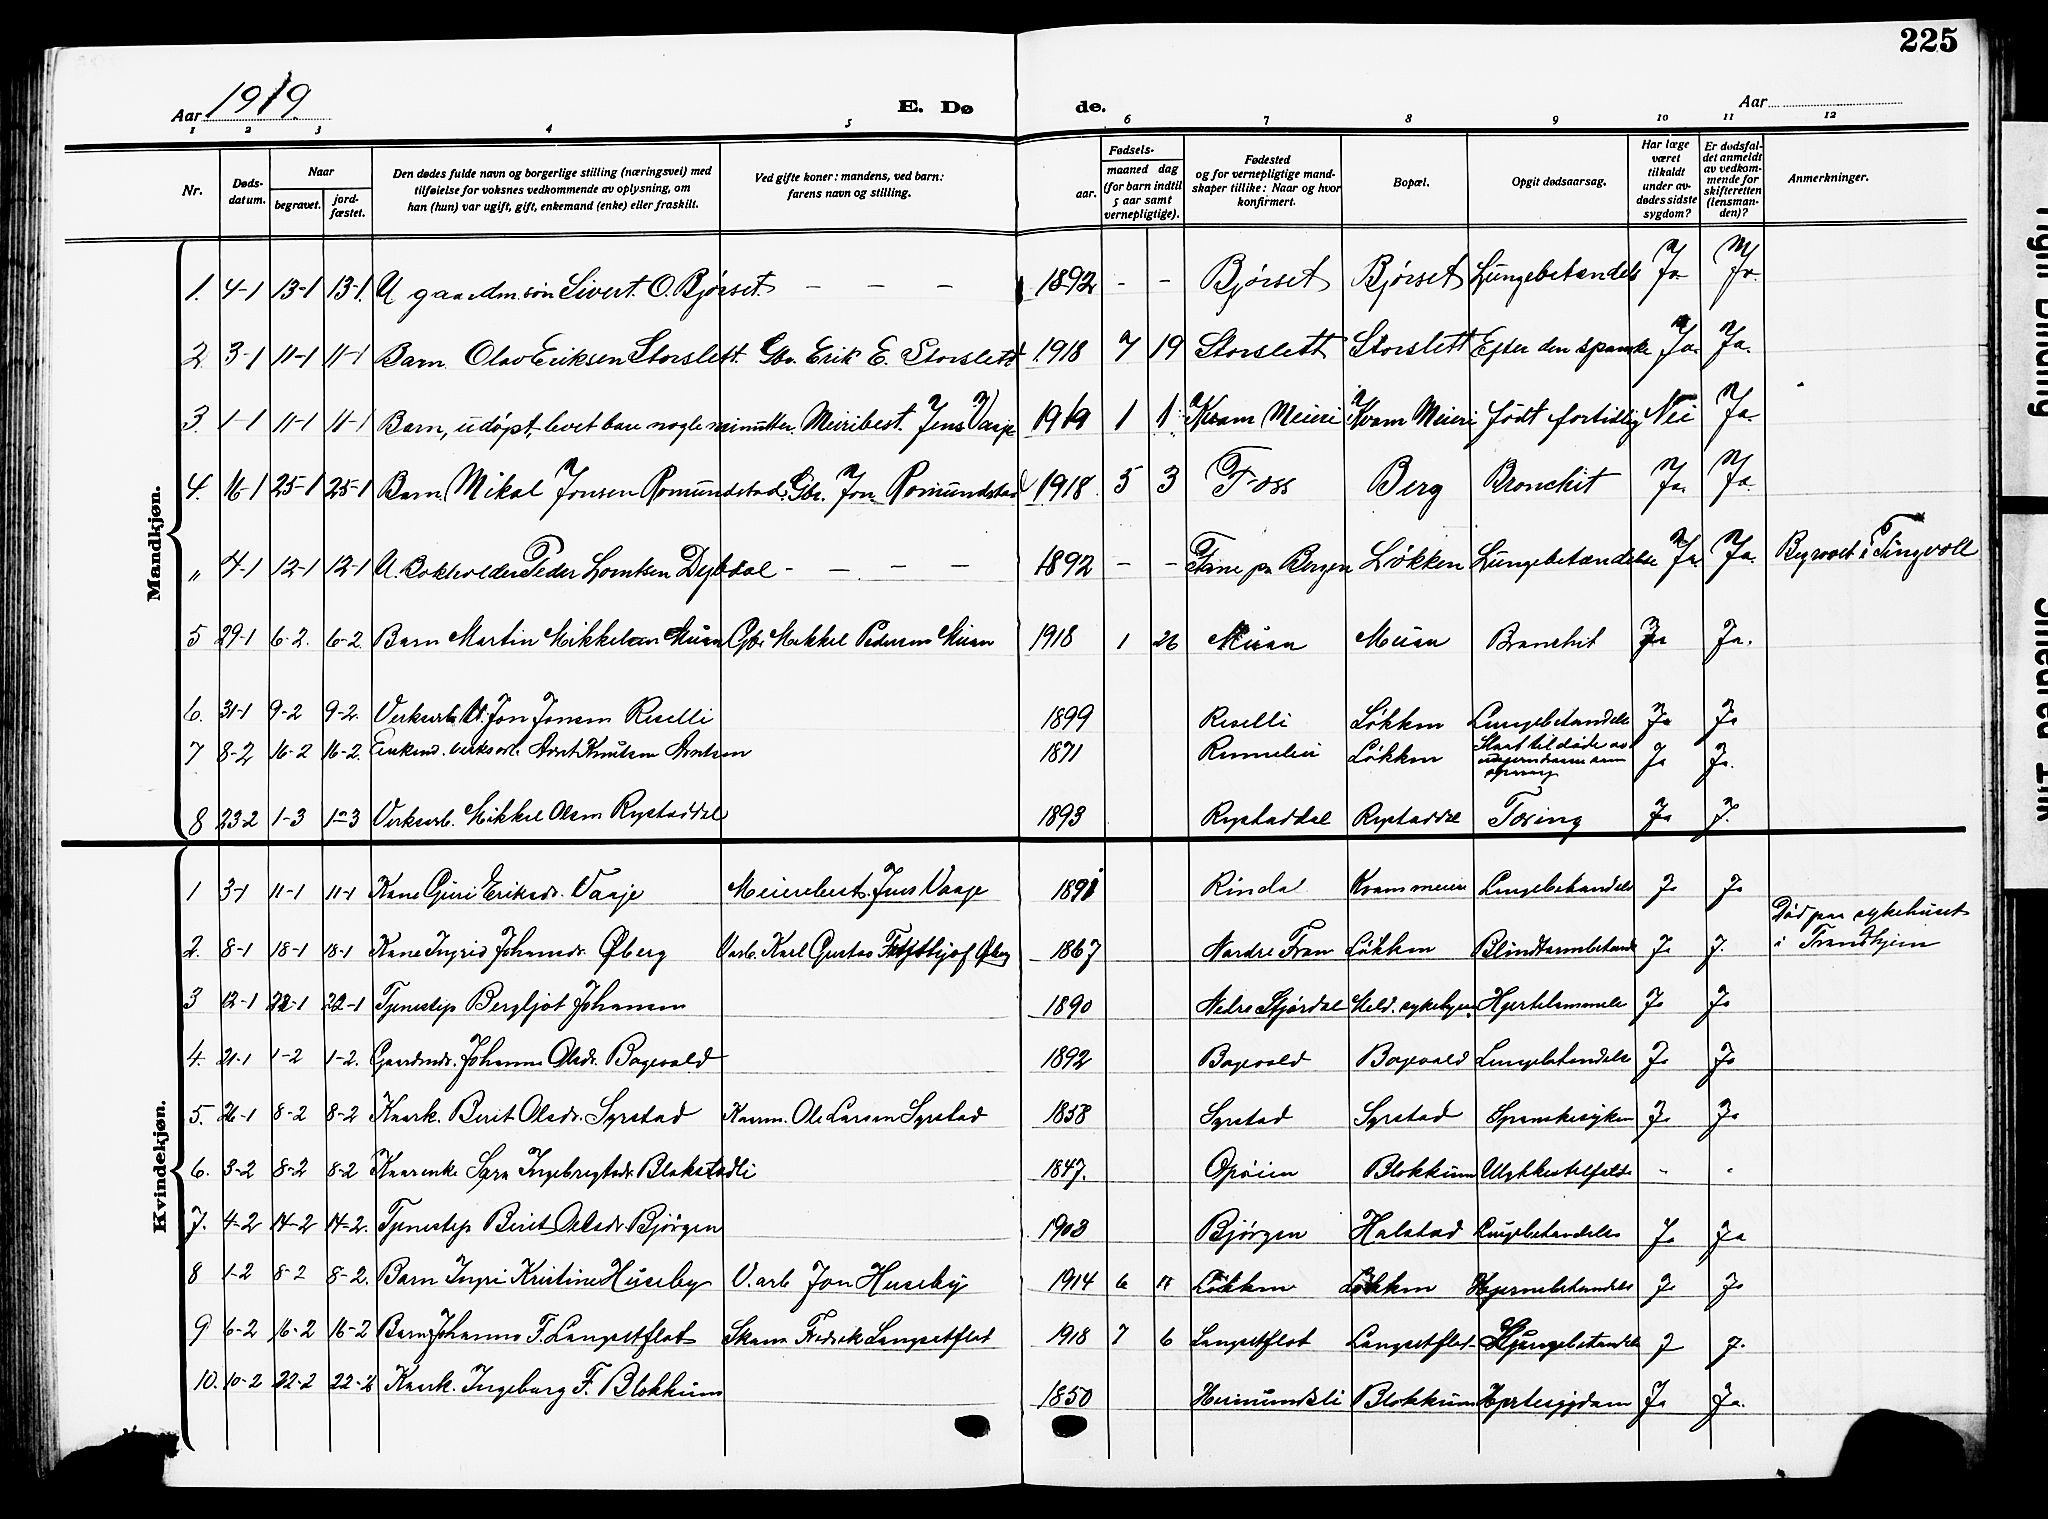 225
Aar 1919.
E. Dø de.
Aar
1 2 3 4 5 6 7 8 9 10 11 12
Nr.
Døds-
datum.
Naar
begravet.
jord-
fæstet.
Den dødes fulde navn og borgerlige stilling (næringsvei) med
tilføielse for voksnes vedkommende av oplysning, om
han (hun) var ugift, gift, enkemand (enke) eller fraskilt.
Ved gifte koner: mandens, ved barn:
farens navn og stilling.
Fødsels-
aar.
maaned dag
(for barn indtil
5 aar samt
vernepligtige).
Fødested
og for vernepligtige mand-
skaper tillike: Naar og hvor
konfirmert.
Bopæl.
Opgit dødsaarsag.
Har læge
været
tilkaldt
under av-
dødes sidste
sygdom?
Er dødsfal-
det anmeldt
av vedkom-
mende for
skifteretten
(lensman-
den)?
Anmerkninger.
Mandkjøn.
1. 4-1 13-1 13-1. U gaardm.søn Sivert. O. Bjørset. - - - 1892 - - Bjørset Bjørset Lungebetændels Ja. Ja.
2 3-1 11-1 11-1 Barn Olav Eriksen Storslett. Gbr. Erik E. Storslett 1918 7 19 Storslett Storslett Efter den spanske Ja. Ja.
3. 1-1 11-1 11-1 Barn, udøpt, levet bare nogle minutter. Meiribest. Jens Vaaje 1919 1 1. Kvam Meieri Kvam Meieri født fortidlig Nei Ja.
4. 16-1 25-1 25-1 Barn Mikal Jonsen Romundstad. Gbr. Jon Romundstad 1918 5 3 Foss Berg Bronchit Ja. Ja.
" 4-1 12-1 12-1 U. Bokholder Peder Lorntsen Dybdal - - - - 1892 - - Fane pr Bergen Løkken Lungebetændelse Ja. Ja. Begravet i Tingvoll
5 29-1 6-2. 6-2. Barn Martin Mikkelsen Muan Gbr. Mikkel Pedersen Muan 1918 1 26 Muan Muan Bronchit Ja Ja.
6. 31-1 9-2 9-2. Verksarb. U. Jon Jonsen Reselli 1899 Reselli Løkken Lungebetændels Ja Ja
7 8-2 16-2 16-2. Enkemd. verksarb. Arnt Knutsen Arntsen 1871 Løkken Ja Ja.
8 23-2 1-3 1-3 Verksarb. Mikkel Olsen Rystaddal 1893 Rystaddal Rystaddal Tæring Ja J.
Kvindekjøn.
1 3-1 11-1 11-1 Kone Guri Eriksdr. Vaaje Meieribest. Jens Vaaje 1891 Rindal Kvam meieri Lungebetændels Ja Ja
2. 8-1 18-1 18-1 Kone Ingrid Johansdr. Øberg Varb. Karl Gustav Øberg 1867 Nordre Fron Løkken Blindtarmbetænd Ja J. Død paa sykehuset
i Trondhjem
3 12-1 22-1 22-1 Tjenestep. Bergljot Johansen 1890 Nedre Stjørdal Meld. sykehjem. Hjertelammelse Ja Ja
4. 21-1 1-2 1-2. Gaardmdr. Johanna Olsdr. Bagevold 1892 Bagevold Bagevold Lungebetændels Ja Ja
5. 26-1 8-2 8-2 Kaark. Berit Olsdr. Syrstad Kaarm. Ole Larsen Syrstad 1858 Syrstad Syrstad Spanskesyken Ja Ja
6. 3-2 8-2 8-2 Kaarenke Sara Ingebrigtsdr. Blokstadli 1847. Opøien Blokkum Ulykkestilfælde - -
7. 4-2 14-2 14-2. Tjenestep. Berit Olsdr. Bjørgen 1903 Bjørgen Halstad Lungebetændels Ja Ja
8 1-2 8-2 8-2. Barn Ingri Kristine Huseby V.arb Jon Huseby 1914 6 11 Løkken Løkken Hjernebetændels Ja Ja
9 6-2 16-2 16-2 Barn Johanna F. Langsetfløt Skom. Fredrik Langsetfløt 1918 7 6 Langsetfløt Langsetfløt J J.
10. 10-2 22-2 22-2 Kaark. Ingeborg F. Blokkum 1850 Heimundsli Blokkum Hjertesygdom Ja Ja.